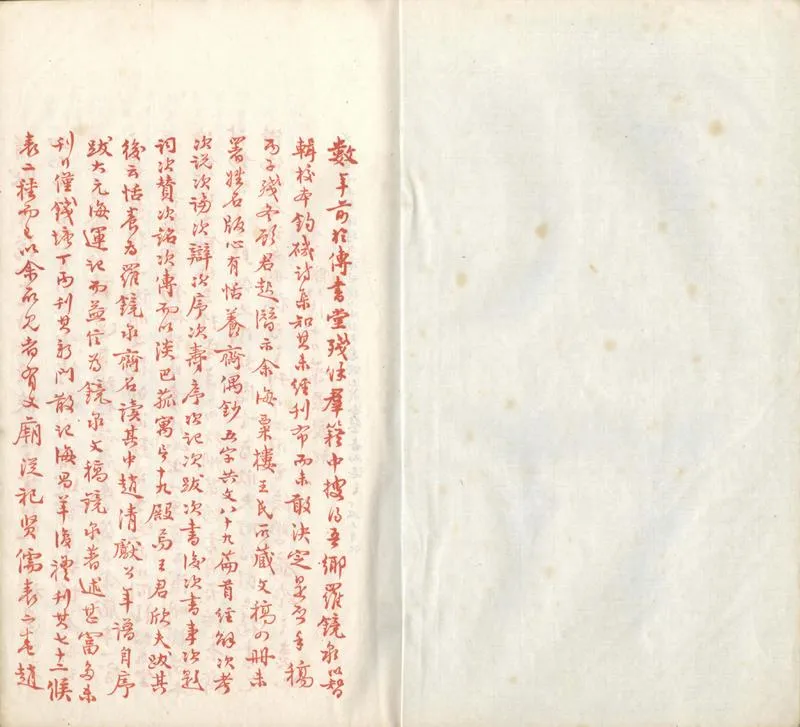 數年前於傳書堂殘佚羣籍中搜得吾鄉羅鏡泉以智
輯校本釣磯詩集知其未經刊布而未敢決定是否手稿
丙子殘冬顧君起潛示余海粟樓王氏所藏文稿四冊未
署姓名版心有恬養齋偶鈔五字共文八十九篇首經解次考
次說次論次辯次序次壽序次記次跋次書後次書事次題
詞次贊次銘次傳而以淡巴菰寓言十九殿焉王君欣夫跋其
後云恬養為羅鏡泉齋名讀其中趙清獻公年譜自序
跋大元海運記而益信為鏡泉文稿鏡泉著述甚富多未
刊行僅錢塘丁丙刊其新門散記海昌羊復禮刊其七十二候
表二種而已以余所見者有文廟從祀賢儒表一卷趙